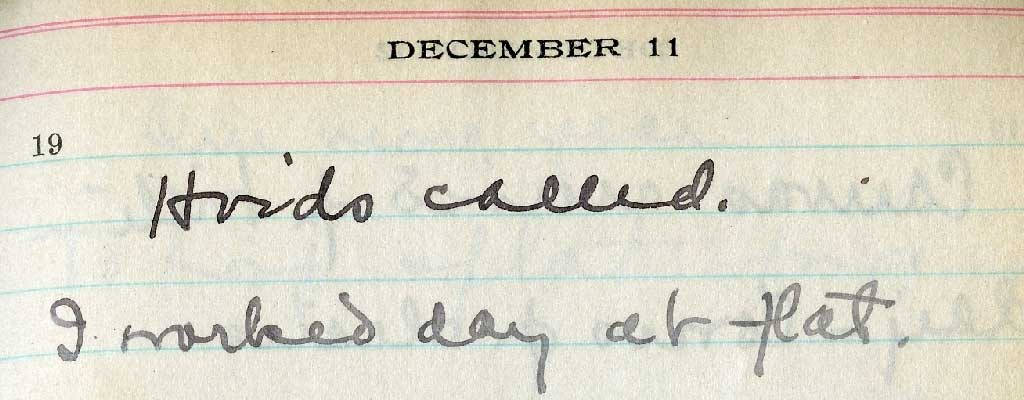 DECEMBER 11
19
Hoids called.
I worked day at flat.